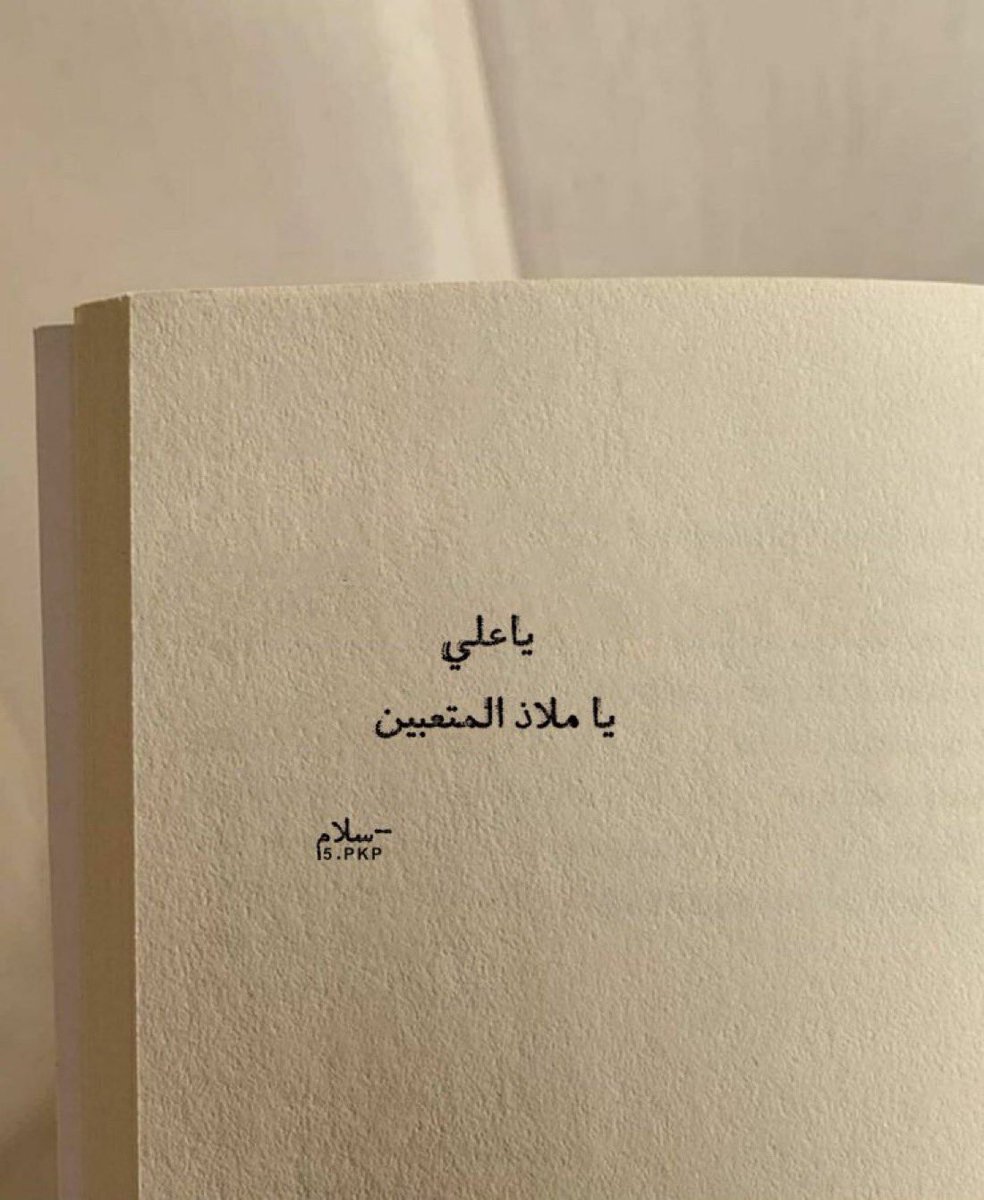 ياعلي
يا ملاذ المتعبين
–سلام
I5.PKP